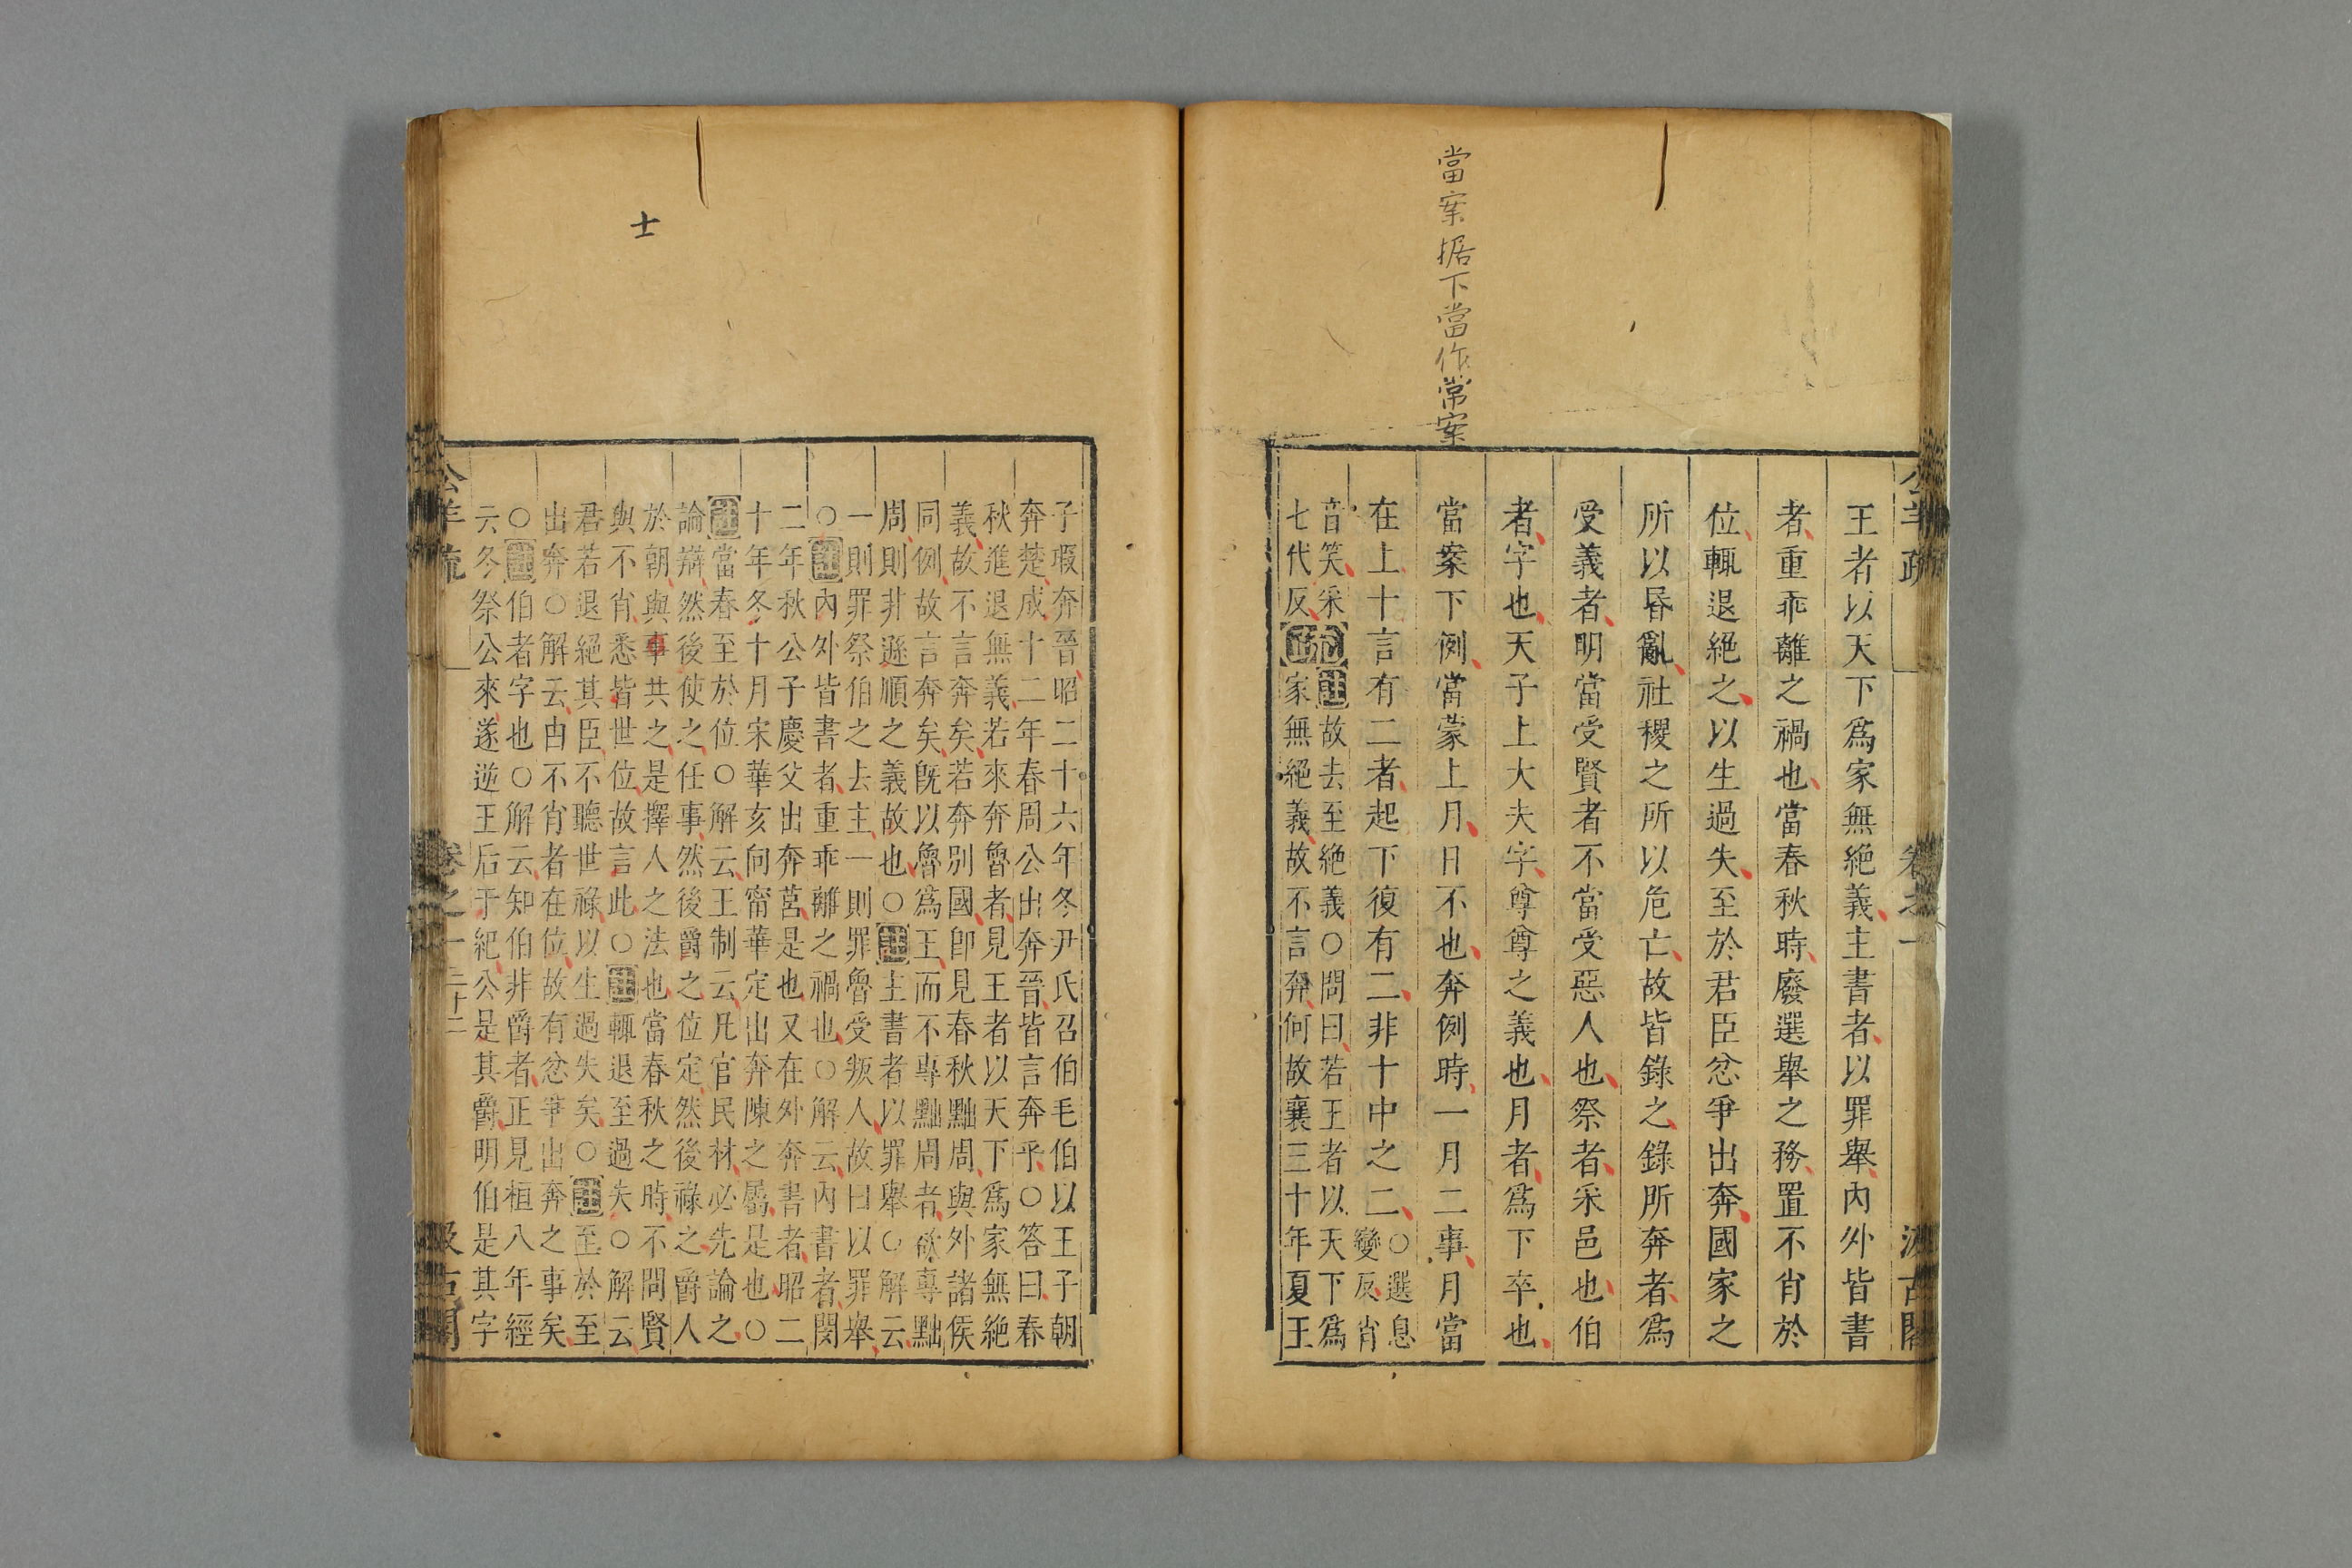 當案据下當作常案
公羊疏 卷之一 汲古閣
王者以天下爲家無絕義主書者以罪舉內外皆書
者重乖離之禍也當春秋時廢選舉之務置不肖於
位輒退絕之以生過失至於君臣忿爭出奔國家之
所以昬亂社稷之所以危亡故皆錄之錄所奔者爲
受義者明當受賢者不當受惡人也祭者采邑也伯
者字也天子上大夫字尊尊之義也月者爲下卒也
當案下例當蒙上月日不也奔例時一月二事月當
在上十言有二者起下復有二非十中之二○選息
變反肖
音笑采
七代反
疏注故去至絕義○問曰若王者以天下爲
家無絕義故不言奔何故襄三十年夏王
士
子瑕奔晉昭二十六年冬尹氏召伯毛伯以王子朝
奔楚成十二年春周公出奔晉皆言奔乎○答曰春
秋進退無義若來奔魯者見王者以天下爲家無絕
義故不言奔矣若奔別國卽見春秋黜周與外諸侯
同例故言奔矣旣以魯爲王而不專黜周者欲專黜
周則非遜順之義故也○注主書者以罪舉○解云
一則罪祭伯之去主一則罪魯受叛人故曰以罪舉
○注內外皆書者重乖離之禍也○解云內書者閔
二年秋公子慶父出奔莒是也又在外奔書者昭二
十年冬十月宋華亥向甯華定出奔陳之屬是也○
注當春至於位○解云王制云凡官民材必先論之
論辯然後使之任事然後爵之位定然後祿之爵人
於朝與事共之是擇人之法也當春秋之時不問賢
與不肖悉皆世位故言此○注輒退至過失○解云
君若退絕其臣不聽世祿以生過失矣○注至於至
出奔○解云由不肖者在位故有忿爭出奔之事矣
○注伯者字也○解云知伯非爵者正見桓八年經
云冬祭公來遂逆王后于紀公是其爵明伯是其字
公羊疏 卷之一 二十二 汲古閣